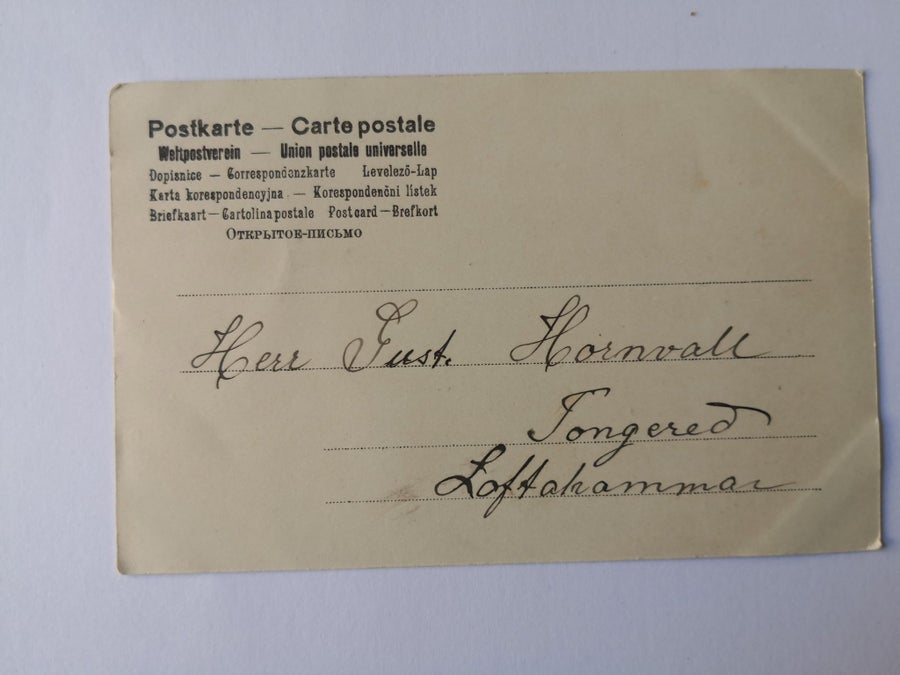 Postkarte — Carte postale
Weltpostverein — Union postale universelle
Dopisnice — Correspondenzkarte Levelező-Lap
Karta korespondencyjna — Korespondenční lístek
Briefkaart — Cartolina postale Post card — Brefkort
Открытое-письмо
Herr Gust. Hornvall
Tongered
Loftahammar